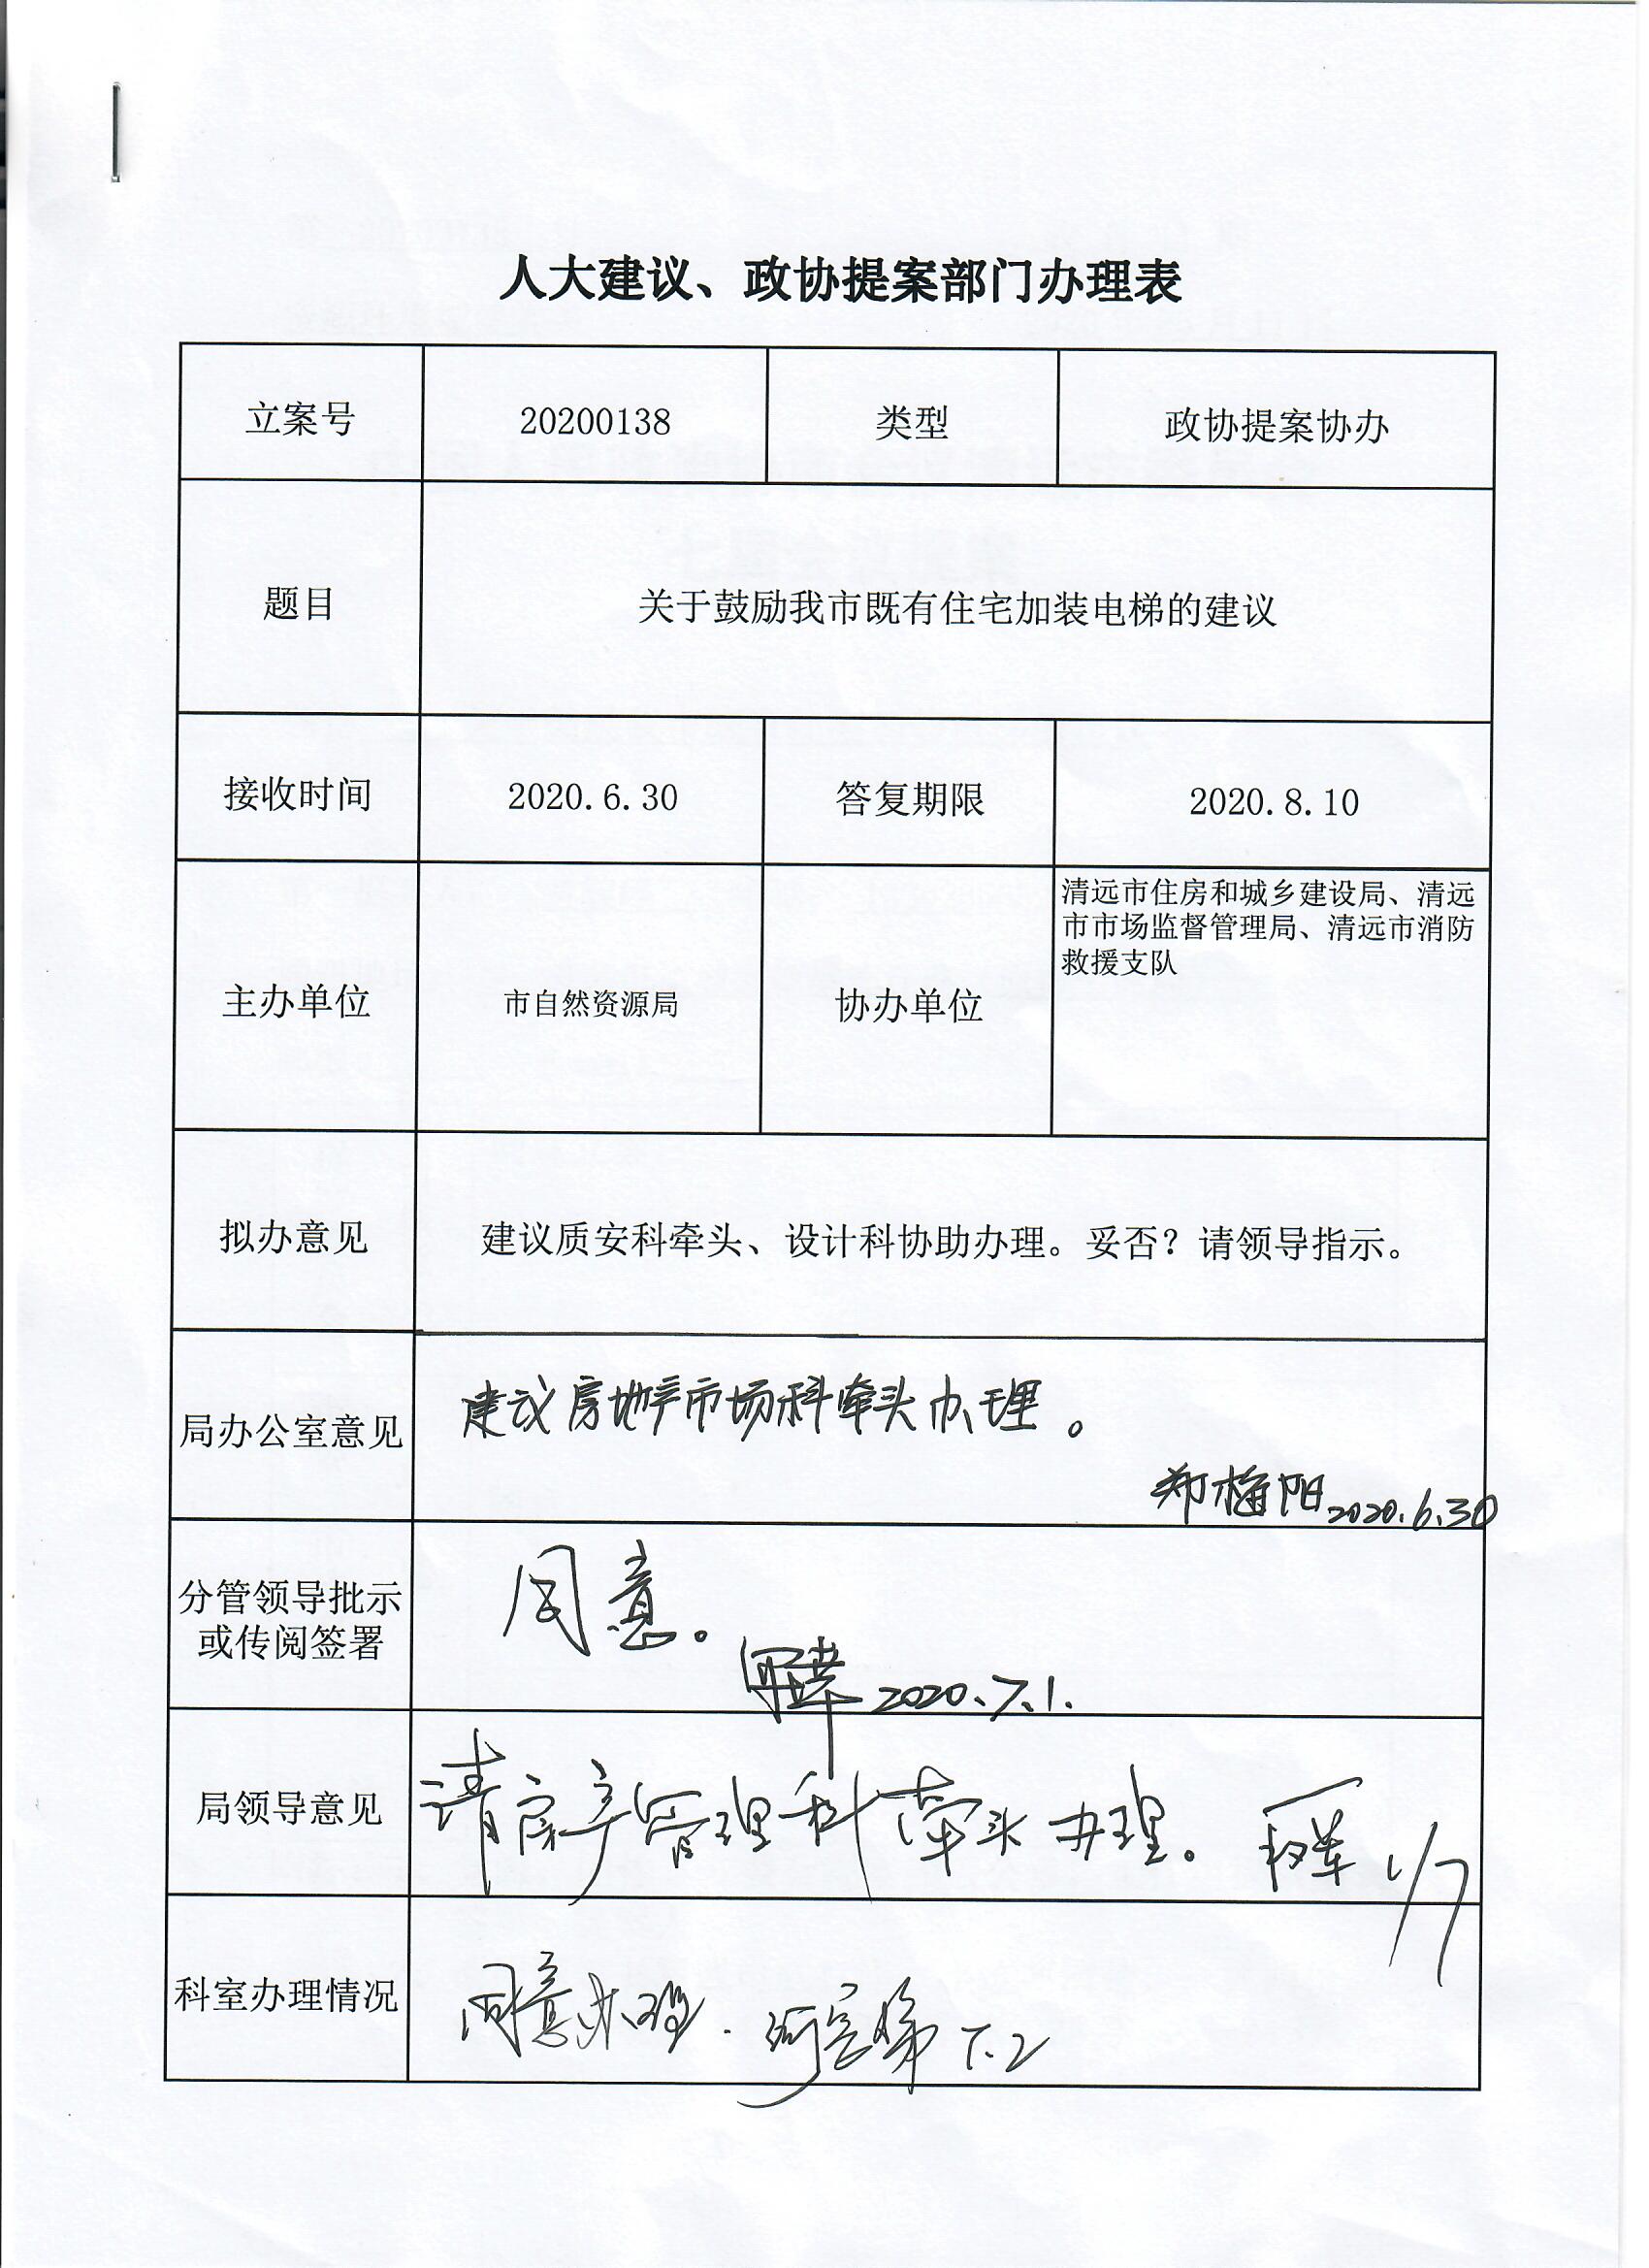 人大建议、政协提案部门办理表
立案号 20200138 类型 政协提案协办
题目 关于鼓励我市既有住宅加装电梯的建议
接收时间 2020.6.30 答复期限 2020.8.10
清远市住房和城乡建设局、清远
市市场监督管理局、清远市消防
救援支队
主办单位 市自然资源局 协办单位
拟办意见 建议质安科牵头、设计科协助办理。妥否？请领导指示。
建议房地产市场科牵头办理。
局办公室意见
郑梅阳 2020.6.30
同意。
分管领导批示
或传阅签署
2020.7.1.
局领导意见 请房产管理科牵头办理。 1/7
科室办理情况 同意办理. 7.2